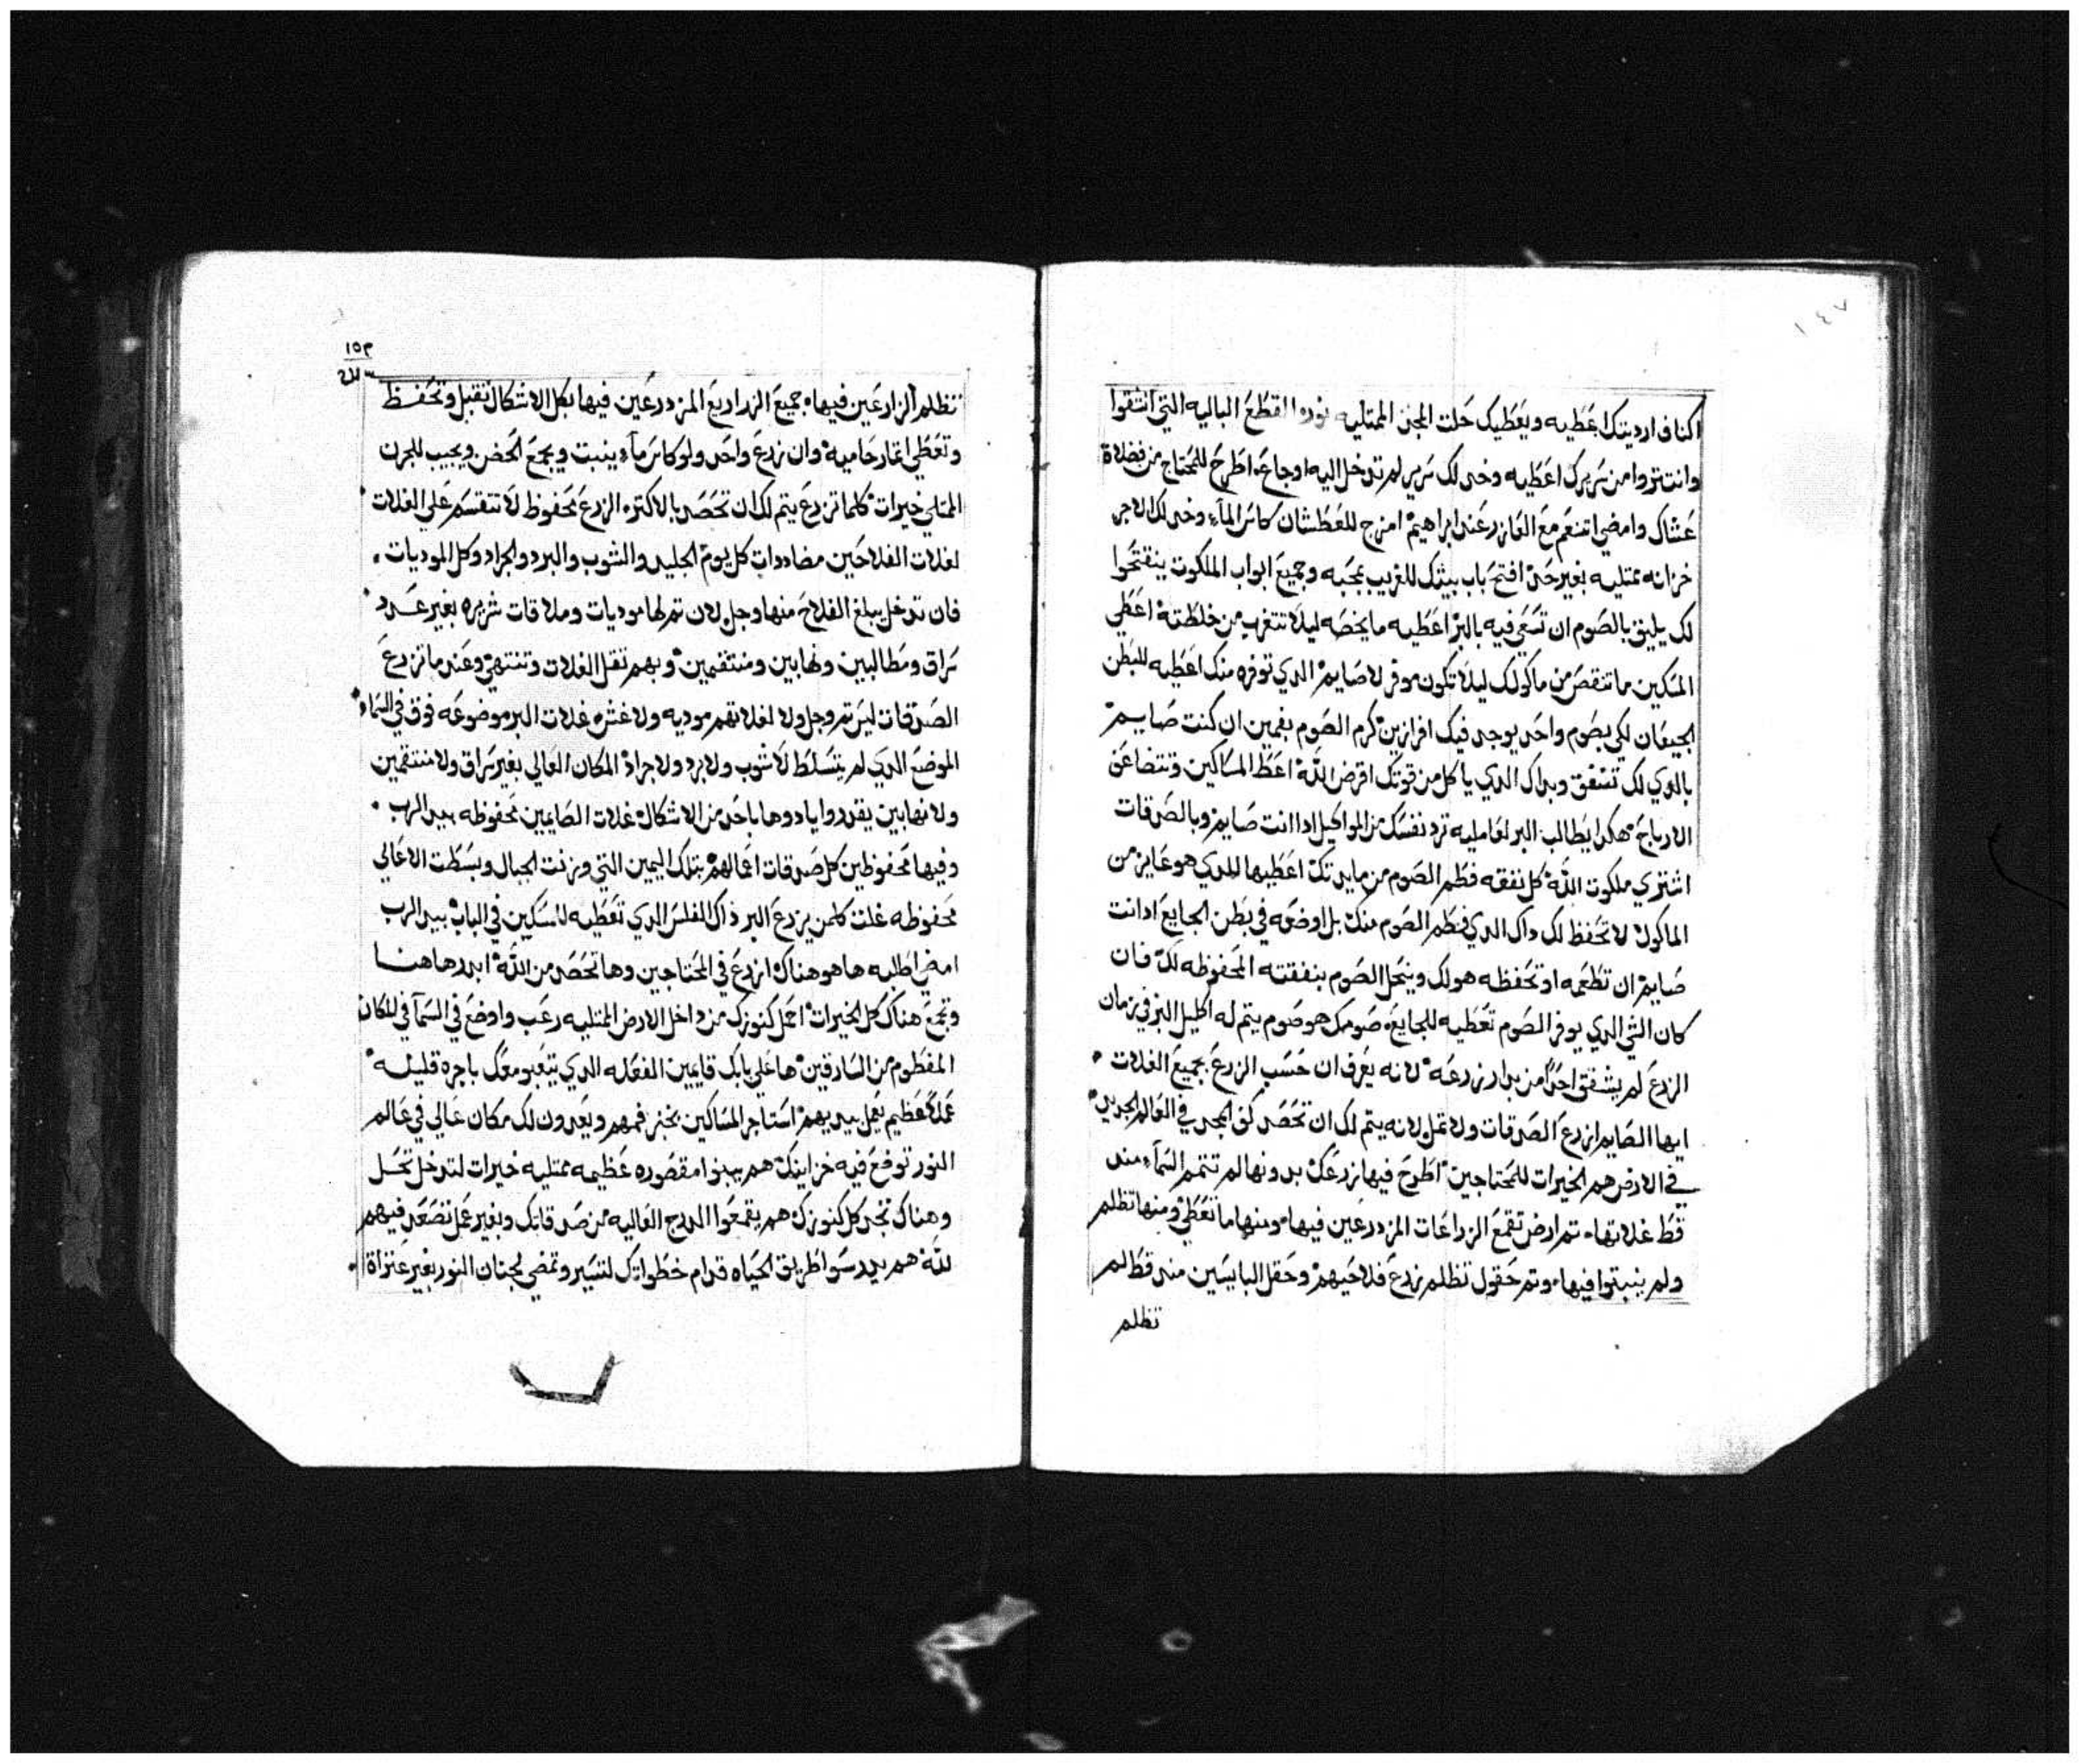 ١٤٧
اكناف ارديتك اعَطيه ويعَطيك حَلت المجد الممتليه نوره القطَعَ الباليه التي انثقوا
وانت تزوا من سَريرك اعَطيه وخد لك سَرير لم تدخل اليه اوجاعَ اطَرحَ للمحَتاج من فضلاة
عَشاك وامضي اتنعَم معَ العَازر عَند ابراهيم امزج للعَطَشان كاسَ المآء وخد لك الاجر
خزانه ممتليه بغير حَد افتحَ باب بيتك للغريب بمحَبه وجميعَ ابواب الملكوت ينفتحَوا
لك يليق بالصَوم ان تسَعَي فيه بالبر اعَطيه ما يخصَه ليلاَ تتغرب من خلطَته اعَطَي
المسَكين ما تنقصَ من ماكولك ليلاَ تكون موفر لا صَايم الدي توفره منك اعَطيه للبَطن
الجيعَان لكي بصَوم واحَد يوجد فيك افرازين كرم الصَوم بفهمين ان كنت صَايم
بالدي لك تشفق وبداك الدي ياكل من قوتك اقرض اللَه اعَطَ المسَاكين وتتضاعَف
الارباحَ هكدا يطَالب البر لعَامليه ترد نفسَك من المواكيل ادا انت صَايم وبالصَدقات
اشتري ملكوت اللَه كل نفقه فطَم الصَوم من مايدتك اعَطَيها للدي هو عَايز من
الماكول لا تحَفظ لك داك الدي فطَم الصَوم منك بل اوضعَه في بطَن الجايعَ ادا انت
صَايم ان تطَعَمه او تحَفظه هو لك وينحَل الصَوم بنفقته المحَفوظه لك فان
كان الشي الدي يوفر الصَوم تعَطيه للجايعَ صَومك هو صَوم يتم له اكليل البر في زمان
الزرعَ لم يشفق احَداً من بدار زرعَه لانه يعَرف ان حَسَب الزرعَ يجميعَ الغلات
ايها الصَايم ازرعَ الصَدقات ولا تمل لانه يتم لك ان تحَصَد كف المجد في العَالم الجديد
في الارض هم الخيرات للمحَتاجين اطَرحَ فيها زرعَك بدونها لم تتمم السَمآء مند
قطَ غلاتها تم ارض تقمعَ الزراعَات المزدرعَين فيها ومنها ما تعَطَي ومنها تظلم
ولم ينبتوا فيها وتم حَقول تظلم زرعَ فلاحَيهم وحَقل البايسَين مند قطَ لم
تظلم
١٥٣
تظلم الزارعَين فيها جميعَ الزراريعَ المزدرعَين فيها بكل الاشكال تقبل وتحَفظ
وتعَطَي اتمار حَاميه وان زرعَ واحَد ولو كاسَ مآء ينبت ويجمعَ الحَض ويجيب للجرن
الممتلي خيرات كلما تزرعَ يتم لك ان تحَصَد بالاكتره الزرعَ محَفوظ لا تتقسَم عَلي الغلات
لغلات الفلاحَين مضاددات كل يوم الجليد والشوب والبرد والجراد وكل الموديات
فان تدخل يبلغ الفلاحَ منها وجل لان تم لها موديات وملاقات شريره بغير عَدد
سَراق ومطَالبين ونهابين ومنتقمين وبهم تقل الغلات وتنتهي وعَند ما تزرعَ
الصَدقات ليسَ تم وجل ولا لغلاتهم موديه ولا غشره غلات البر موضوعَه فوق في السَماء
الموضعَ الدي لم يتسَلطَ لا شوب ولا برد ولا جراد المكان العَالي بغير سَراق ولا منتقمين
ولا نهابين يقدروا يادوها باحَد من الاشكال غلات الصَايمين محَفوظه بيد الرب
وفيها محَفوظين كل صَدقات اعَمالهم بتلك اليمين التي وزنت الجبال وبسَطَت الاعَالي
محَفوظه غلت كلمن يزرعَ البر ذاك الفلسَ الدي تعَطَيه للمسَكين في الباب بيد الرب
امض اطَلبه ها هو هناك ازرعَ في المحَتاجين وها تحَصَد من اللَه ابدر هاهنا
وتجمعَ هناك كل الخيرات احَمل كنوزك من داخل الارض الممتليه رعَب واوضعَ في السَمآ في المكان
المفطَوم من السَارقين ها عَلي بابك قايمين الفعَله الدي يتعَبو معَك باجره قليله
عَملاً عَظيم يعَمل بيديهم اسَتاجر المسَاكين بخبز فمهم ويعَدون لك مكان عَالي في عَالم
النور توضعَ فيه خزاينك هم يبنوا مقصَوره عَظيمه ممتليه خيرات لتدخل تحَل
وهناك تجد كل كنوزك هم يقمعَوا الدرج العَاليه من صَدقاتك وبغير عَمل تصَعَد فيهم
للَه هم بيد سَوا طَريق الحَياه قدام خطَواتك لتسَير وتمضي لجنان النور بغير عَتراة